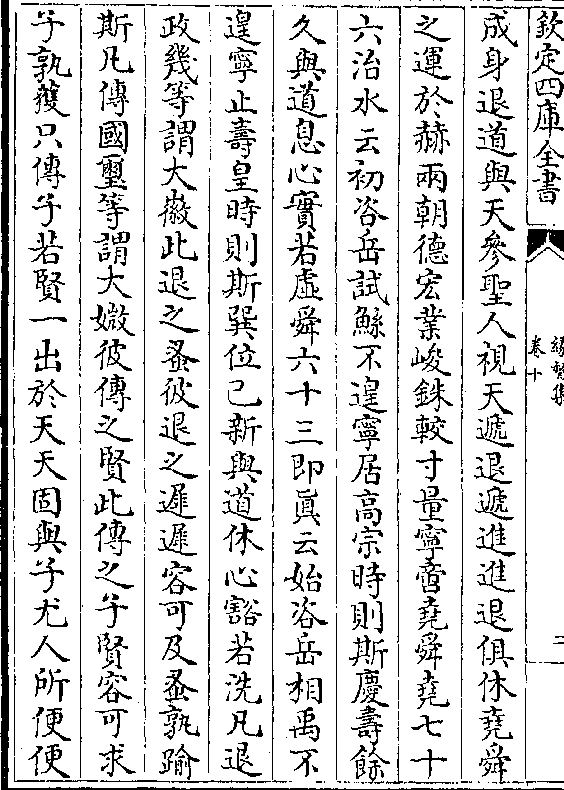 欽定四庫全書
卷十
二
成身退道與天參聖人視天遞退遞進進退俱休堯舜
之運於赫兩朝德宏業峻銖較寸量寧啻堯舜堯七十
六治水云初咨岳試鯀不遑寧居高宗時則斯慶壽餘
久與道息心實若虛舜六十三即真云始咨岳相禹不
遑寧止壽皇時則斯巽位已新與道休心豁若洗凡退
政幾等謂大媺此退之蚤彼退之遲遲容可及蚤孰踰
斯凡傳國璽等謂大媺彼傳之賢此傳之子賢容可求
子孰獲只傳子若賢一出於天天固與子尤人所便便